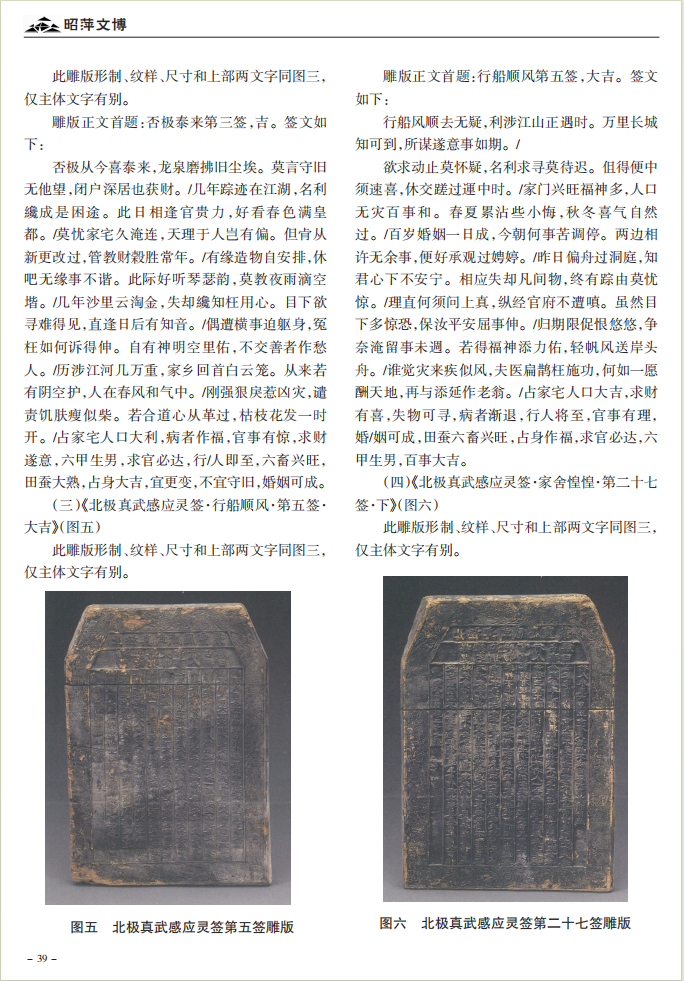 昭萍文博
此雕版形制、纹样、尺寸和上部两文字同图三,
仅主体文字有别。
雕版正文首题:否极泰来第三签,吉。签文如
下:
否极从今喜泰来,龙泉磨拂旧尘埃。莫言守旧
无他望,闭户深居也获财。/几年踪迹在江湖,名利
纔成是困途。此日相逢官贵力,好看春色满皇
都。/莫忧家宅久淹连,天理于人岂有偏。但肯从
新更改过,管教财穀胜常年。/有缘造物自安排,休
吧无缘事不谐。此际好听琴瑟韵,莫教夜雨滴空
堦。/几年沙里云淘金,失却纔知枉用心。目下欲
寻难得见,直逢日后有知音。/偶遭横事迫躯身,冤
枉如何诉得伸。自有神明空里佑,不交善者作愁
人。/历涉江河几万重,家乡回首白云笼。从来若
有阴空护,人在春风和气中。/刚强狠戾惹凶灾,谴
责饥肤瘦似柴。若合道心从革过,枯枝花发一时
开。/占家宅人口大利,病者作福,官事有惊,求财
遂意,六甲生男,求官必达,行/人即至,六畜兴旺,
田蚕大熟,占身大吉,宜更变,不宜守旧,婚姻可成。
(三)《北极真武感应灵签·行船顺风·第五签·
大吉》(图五)
此雕版形制、纹样、尺寸和上部两文字同图三,
仅主体文字有别。
图五 北极真武感应灵签第五签雕版
雕版正文首题:行船顺风第五签,大吉。签文
如下:
行船风顺去无疑,利涉江山正遇时。万里长城
知可到,所谋遂意事如期。/
欲求动止莫怀疑,名利求寻莫待迟。但得便中
须速喜,休交蹉过運中时。/家门兴旺福神多,人口
无灾百事和。春夏累沾些小悔,秋冬喜气自然
过。/百岁婚姻一日成,今朝何事苦调停。两边相
许无余事,便好承观过娉婷。/昨日偏舟过洞庭,知
君心下不安宁。相应失却凡间物,终有踪由莫忧
惊。/理直何须问上真,纵经官府不遭嗔。虽然目
下多惊恐,保汝平安屈事伸。/归期限促恨悠悠,争
奈淹留事未週。若得福神添力佑,轻帆风送岸头
舟。/谁觉灾来疾似风,夫医扁鹊枉施功,何如一愿
酬天地,再与添延作老翁。/占家宅人口大吉,求财
有喜,失物可寻,病者渐退,行人将至,官事有理,
婚/姻可成,田蚕六畜兴旺,占身作福,求官必达,六
甲生男,百事大吉。
(四)《北极真武感应灵签·家舍惶惶·第二十七
签·下》(图六)
此雕版形制、纹样、尺寸和上部两文字同图三,
仅主体文字有别。
图六 北极真武感应灵签第二十七签雕版
– 39 –